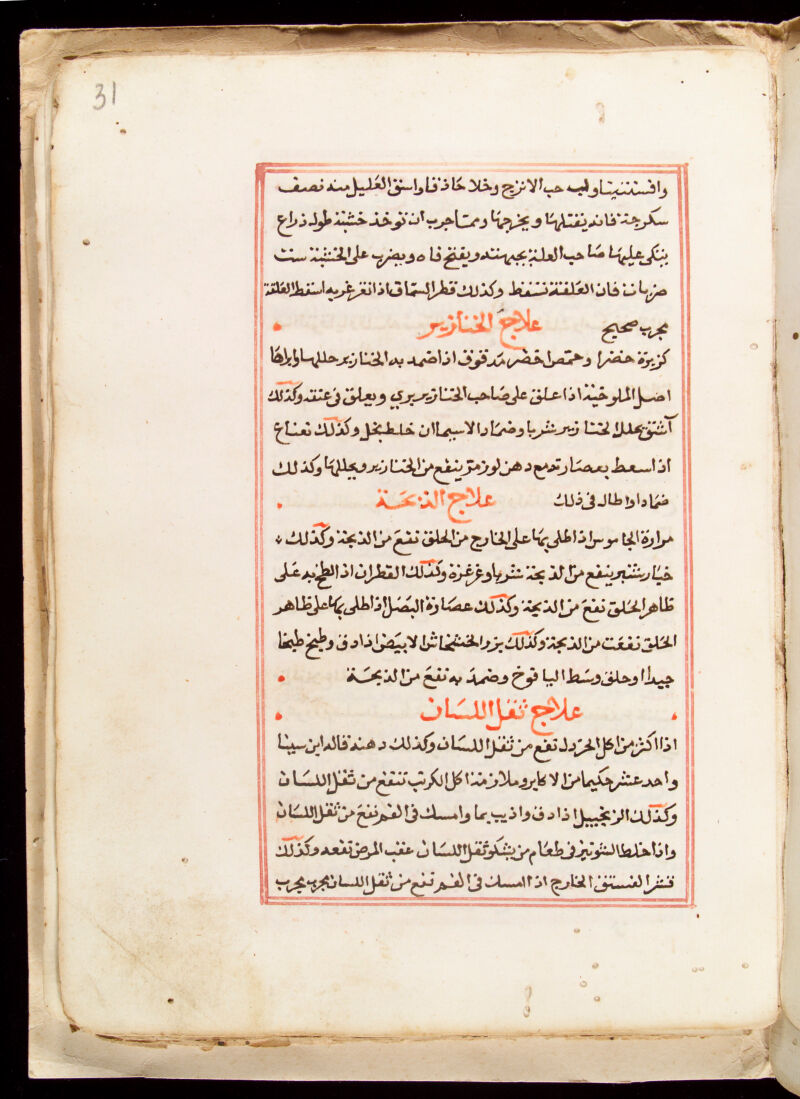 31
وافسنتينا ولب حب الاترج وخلا حاذقا واسق العليل منه نصف
سكرجة فانه يقتلها و يخرجها ومما جرب ان توخذ خشبة طول ذراع
يتكى عليها صاحب العلة بجبهته ويفتح فاه ويضرب على الخشبة ست
ضربات فان العلقة تسقط وكذلك قطر السماق اذا تغرغر به اسقط العلقة
مجرب صحيح علاج الخنازير
كزبرة خضرا وحمص اخضر مدقوق اذا ضمد به الخنازير حللها وابراها
اصل الملوخية اذا علق على صاحب الخنازير يرى ويعلق في عنقه وكذلك
آشق يحلل الخنازير شربا وضمادا لاسيما ان خلط بخل وكذلك نعناع
اذا سعط بعصارته مع دهن لوز مر ينفع من الخنازير ويحللها وكذلك
ضمادا وا طال في ذلك علاج الذبحة
مرارة الجاموس اذا طلى بها على الخارج من الحلق نفع من الذبحة وكذلك
خيار شنبر ينفع من الذبحة شربا وغرغرة وكذلك القطران اذا لطخ به على
ظاهر الحلق نفع من الذبحة وكذلك عصارة البصل اذا طلى بها على ظاهر
الحلق نفعت من الذبحة وكذلك بزر الخشخاش الابيض اذا دق وطبخ طبخا
جيدا وحلق وسط اليافوخ وضمد به نفع من الذبحة
علاج ثقل اللسان
اذا اكثر من اكل الخردل نفع من ثقل اللسان وكذلك دهنه قاله ابن سينا
واحد عشر حكيما من الاكابر وملازمة اكل الكرنب تنفع من ثقل اللسان
وكذلك الزنجبيل اذا دق واذيب بما وامسك في الفم نفع من ثقل اللسان
واذا خلط الشونيز في طعام من يشكو ثقل اللسان عقب المرض نفعه وكذلك
قشر الفستق الخارج اذا امسك في الفم نفع من ثقل اللسان مجرب مجرب